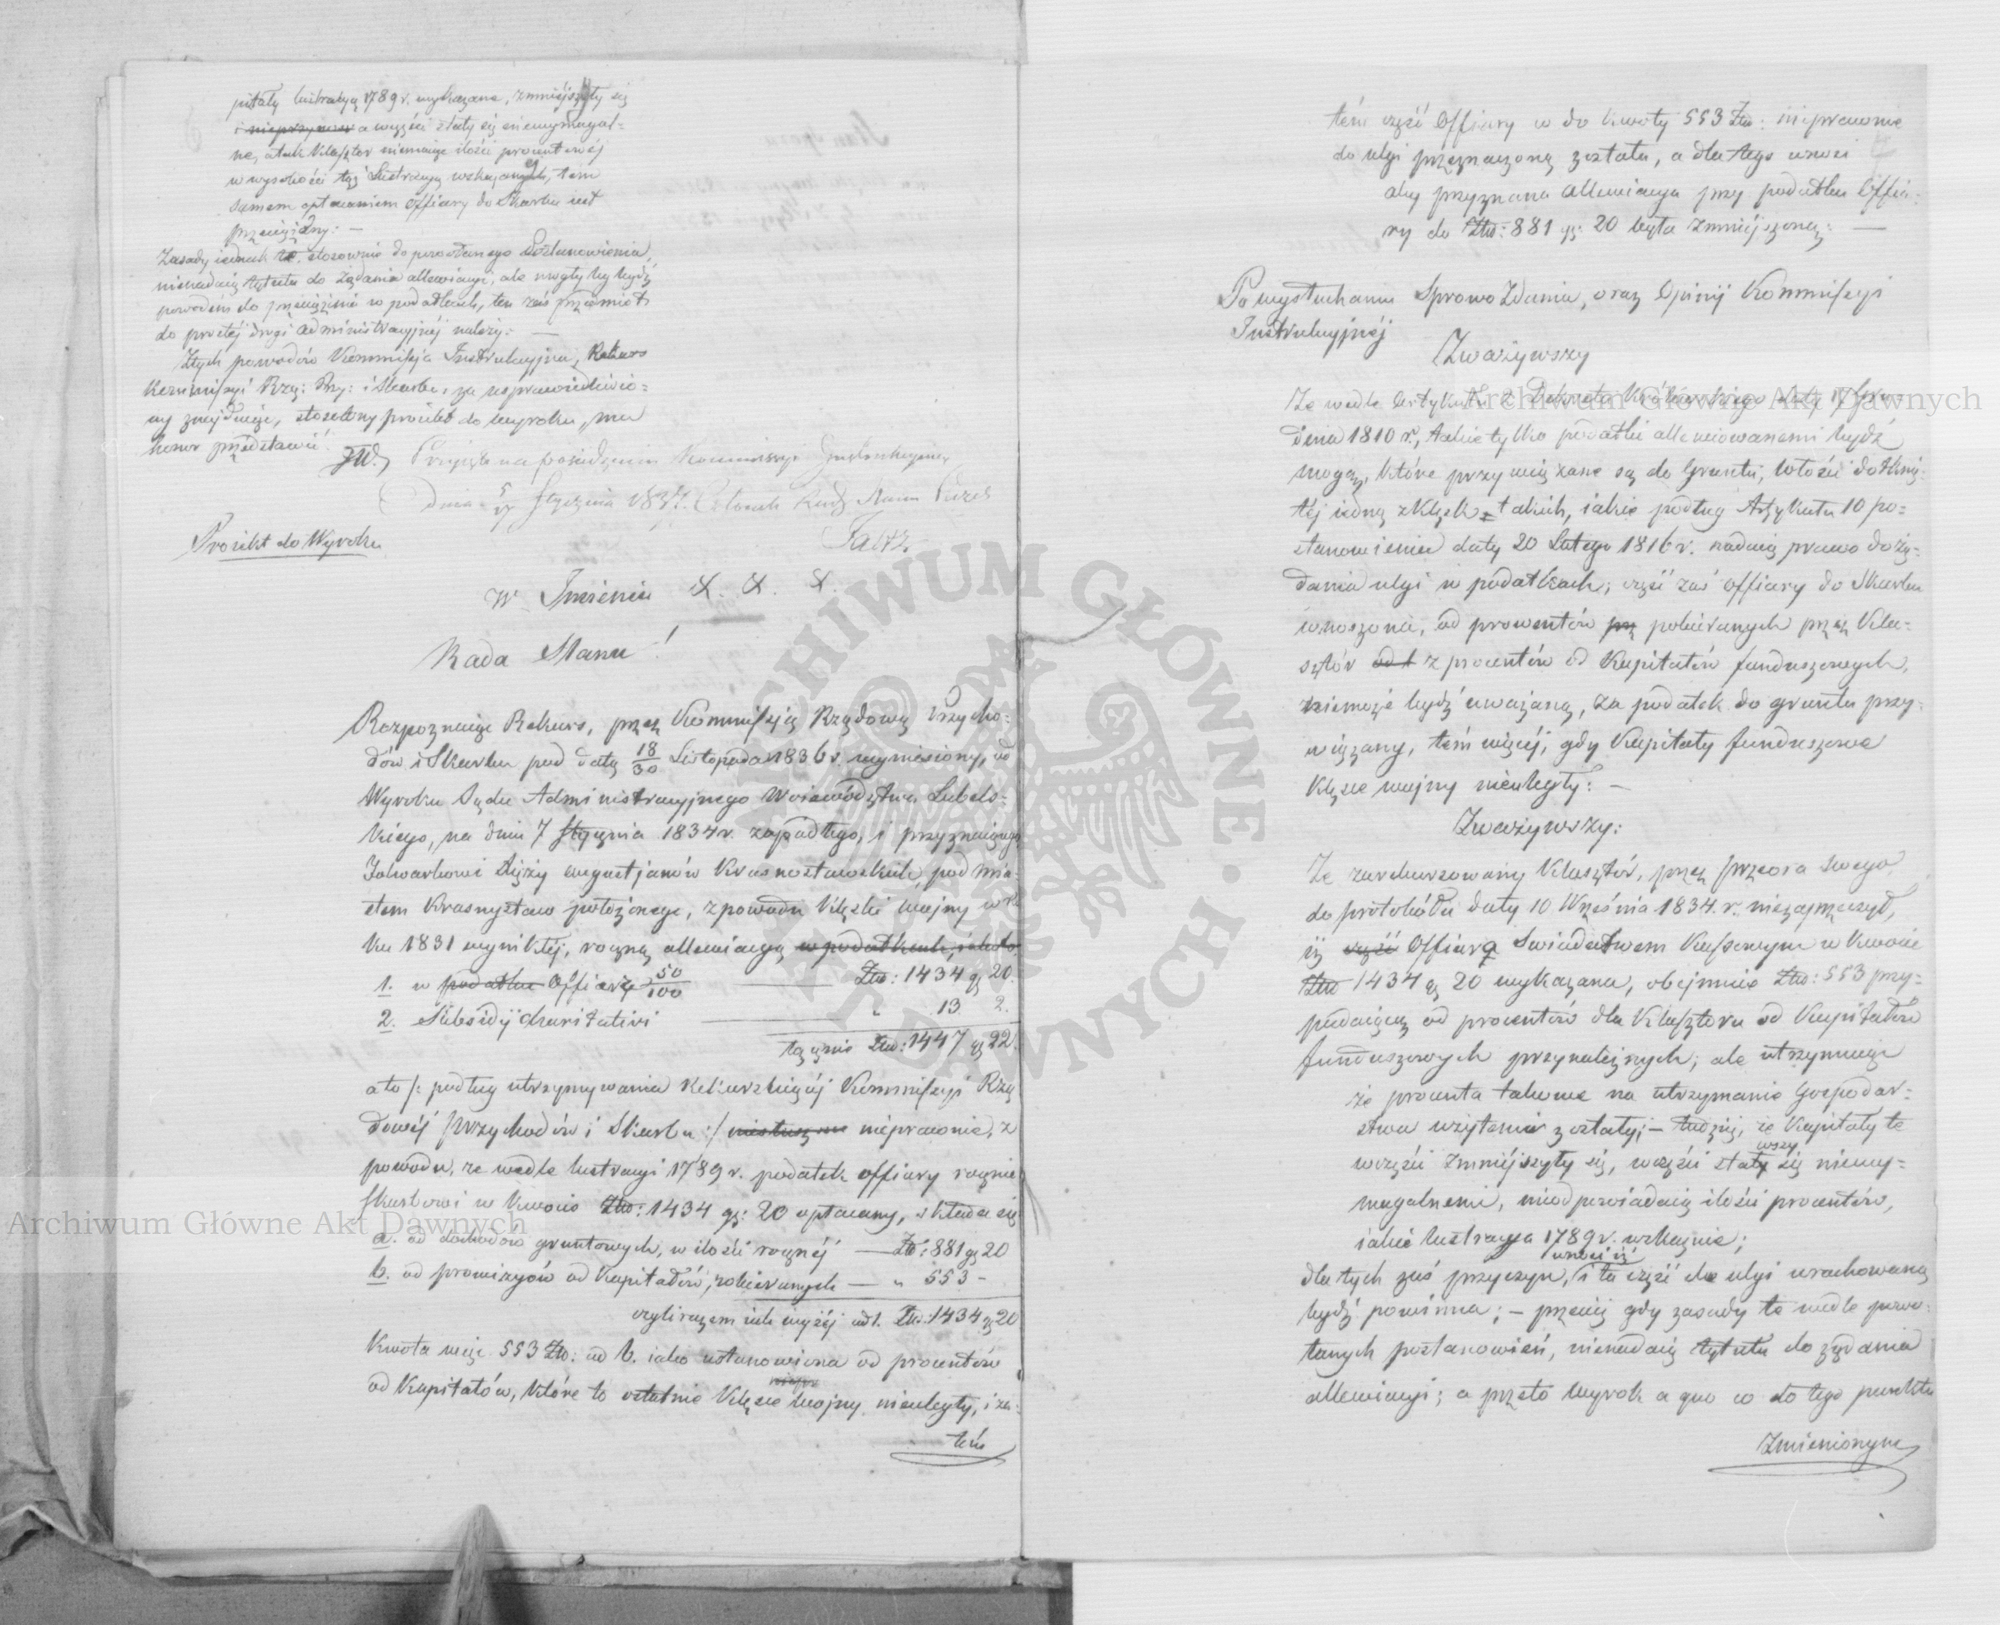 pitały lustracyą 1789 r. wykazane, zmniejszyły się
i nieprzynoss a w części stały się niewymagal=
ne, a tak Klasztor niemaiąc ilości procentowéj
w wysokości tąż Lustracyą wskazanych, tem
samem opłacaniem Offiary do Skarbu iest
przeciążony: —
Zasady iednak te, stosownie do powołanego Postanowienia,
nienadaią tytułu do żądania allewiacyi, ale mogłyby bydź
powodem do przeciążenia w podatkach, ten zaś przedmiot
do prostéj drogi administracyjnéj należy: —
Z tych powodów Kommissyja Instrukcyjna, Rekurs
Kommissyi Rzą: Przy: i Skarbu, za usprawiedliwio=
ny znajduiąc, stosowny proiekt do wyroku, ma
honor przedstawić.
Przyięto na posiedzeniu Kommissyi Instrukcyjney
dnia 5/17 Stycznia 1837. Członek Rady Stanu
Proiekt do Wyroku
W Imieniu X. X. X.
Rada Stanu!
Rozpoznaiąc Rekurs, przez Kommissyią Rządową Przycho=
dów i Skarbu pod datą 18/30 Listopada 1836 r. wyniesiony, od
Wyroku Sądu Administracyjnego Woiewództwa Lubels=
kiego, na dniu 7 Stycznia 1834 r. zapadłego, i przyznaiącego
Folwarkowi Xięży Augustjanów Krasnostawskich, pod mia=
stem Krasnystaw położonego, z powodu klęski wojny w r=
ku 1831 wynikłéj, roczną allewiacyą w podatkach, iako to
1. w podatku Offiary 50/100 — Złtt: 1434 gr 20.
2. Subsidij Charitativi — „ 13. 2.
łącznie Złtt: 1447 gr 22.
a to /: podług utrzymywania rekuruiącéj Kommissyi Rzą
dowéj Przychodów i Skarbu :/ niesłuszne nieprawnie, z
powodu, że wedle lustracyi 1789 r. podatek offiary rocznie
Skarbowi w kwocie Złtt: 1434 gr: 20 opłacany, składa się
a. od dochodów gruntowych, w ilości rocznéj — Złt: 881 gr 20
b. od prowizyów od Kapitałów, pobieranych — „ 553 –
czyli razem iak wyżéj ad 1. Złt: 1434 gr 20
Kwota więc 553 Złtt: ad b. iako ustanowiona od procentów
od Kapitałów, które to ostatnie klęsce wojny nieuległy, i za=
tem
tem część Offiary co do kwoty 553 Złtt: nieprawnie
do ulgi przeznaczoną została, a dla tego wnosi
aby przyznana allewiacya przy podatku Offia=
ry do Złtt: 881 gr: 20 była zmniéjszoną: —
Po wysłuchaniu Sprawozdania, oraz Opinij Kommissyi
Instrukcyjnéj
Zważywszy
Że wedle Artykułu 2 Dekretu Królewskiego daty 17 Gru=
dnia 1810 r., takie tylko podatki allewiowanemi bydź
mogą, które przywiązane są do Gruntu, włości dotknię=
téj iedną z klęsk takich, iakie podług Artykułu 10 po=
stanowienia daty 20 Lutego 1816 r. nadaią prawo do żą=
dania ulgi w podatkach; część zaś Offiary do Skarbu
wnoszona, od prowentów prz pobieranych przez Kla=
sztór od k z procentów od Kapitałów funduszowych,
niemoże bydź uważaną, za podatek do gruntu przy=
wiązany, tém więcéj, gdy Kapitały funduszowe
klęsce wojny nieuległy: —
Zważywszy:
Że zarekursowany Klasztór, przez przeora swego
do protokółu daty 10 Września 1834. r. niezaprzeczył,
iż część Offiara Świadectwem Kassowym w kwocie
Złtt 1434 gr 20 wykazana, obejmuie Złtt: 553 przy=
padaiącą od procentów dla Klasztoru od Kapitałów
funduszowych przynależnych; ale utrzymuiąc
że procenta takowe na utrzymanie Gospodar=
stwa użytemi zostały; — tudzież, że Kapitały te
w części zmniéjszyły się, w części stawszy się niewy=
magalnemi, nieodpowiadaią ilości procentów,
iakie lustracya 1789 r. wskazuie;
dla tych zaś przyczyn, wnosi iż i ta część do ulgi wrachowaną
bydź powinna; — przeciéż gdy zasady te wedle powo=
łanych postanowień, nienadaią tytułu do żądania
allewiacyi; a przeto Wyrok a quo co do tego punktu
Zmienionym
Archiwum Główne Akt Dawnych
Archiwum Główne Akt Dawnych
ARCHIWUM GŁÓWNE · AKT DAWNYCH ·